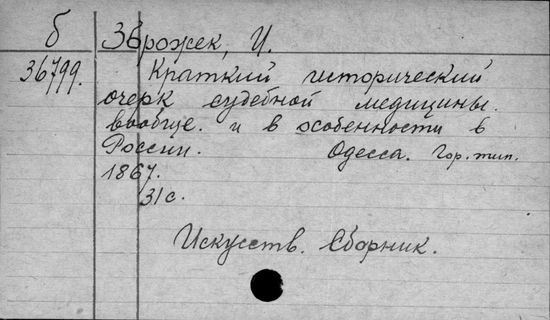 б Зброжек, И.
36799. Краткий исторический
очерк судебной медицины.
вообще. и в особенности в
России. Одесса. Гор. тип.
1867.
31 с.
Искусств. Сборник.